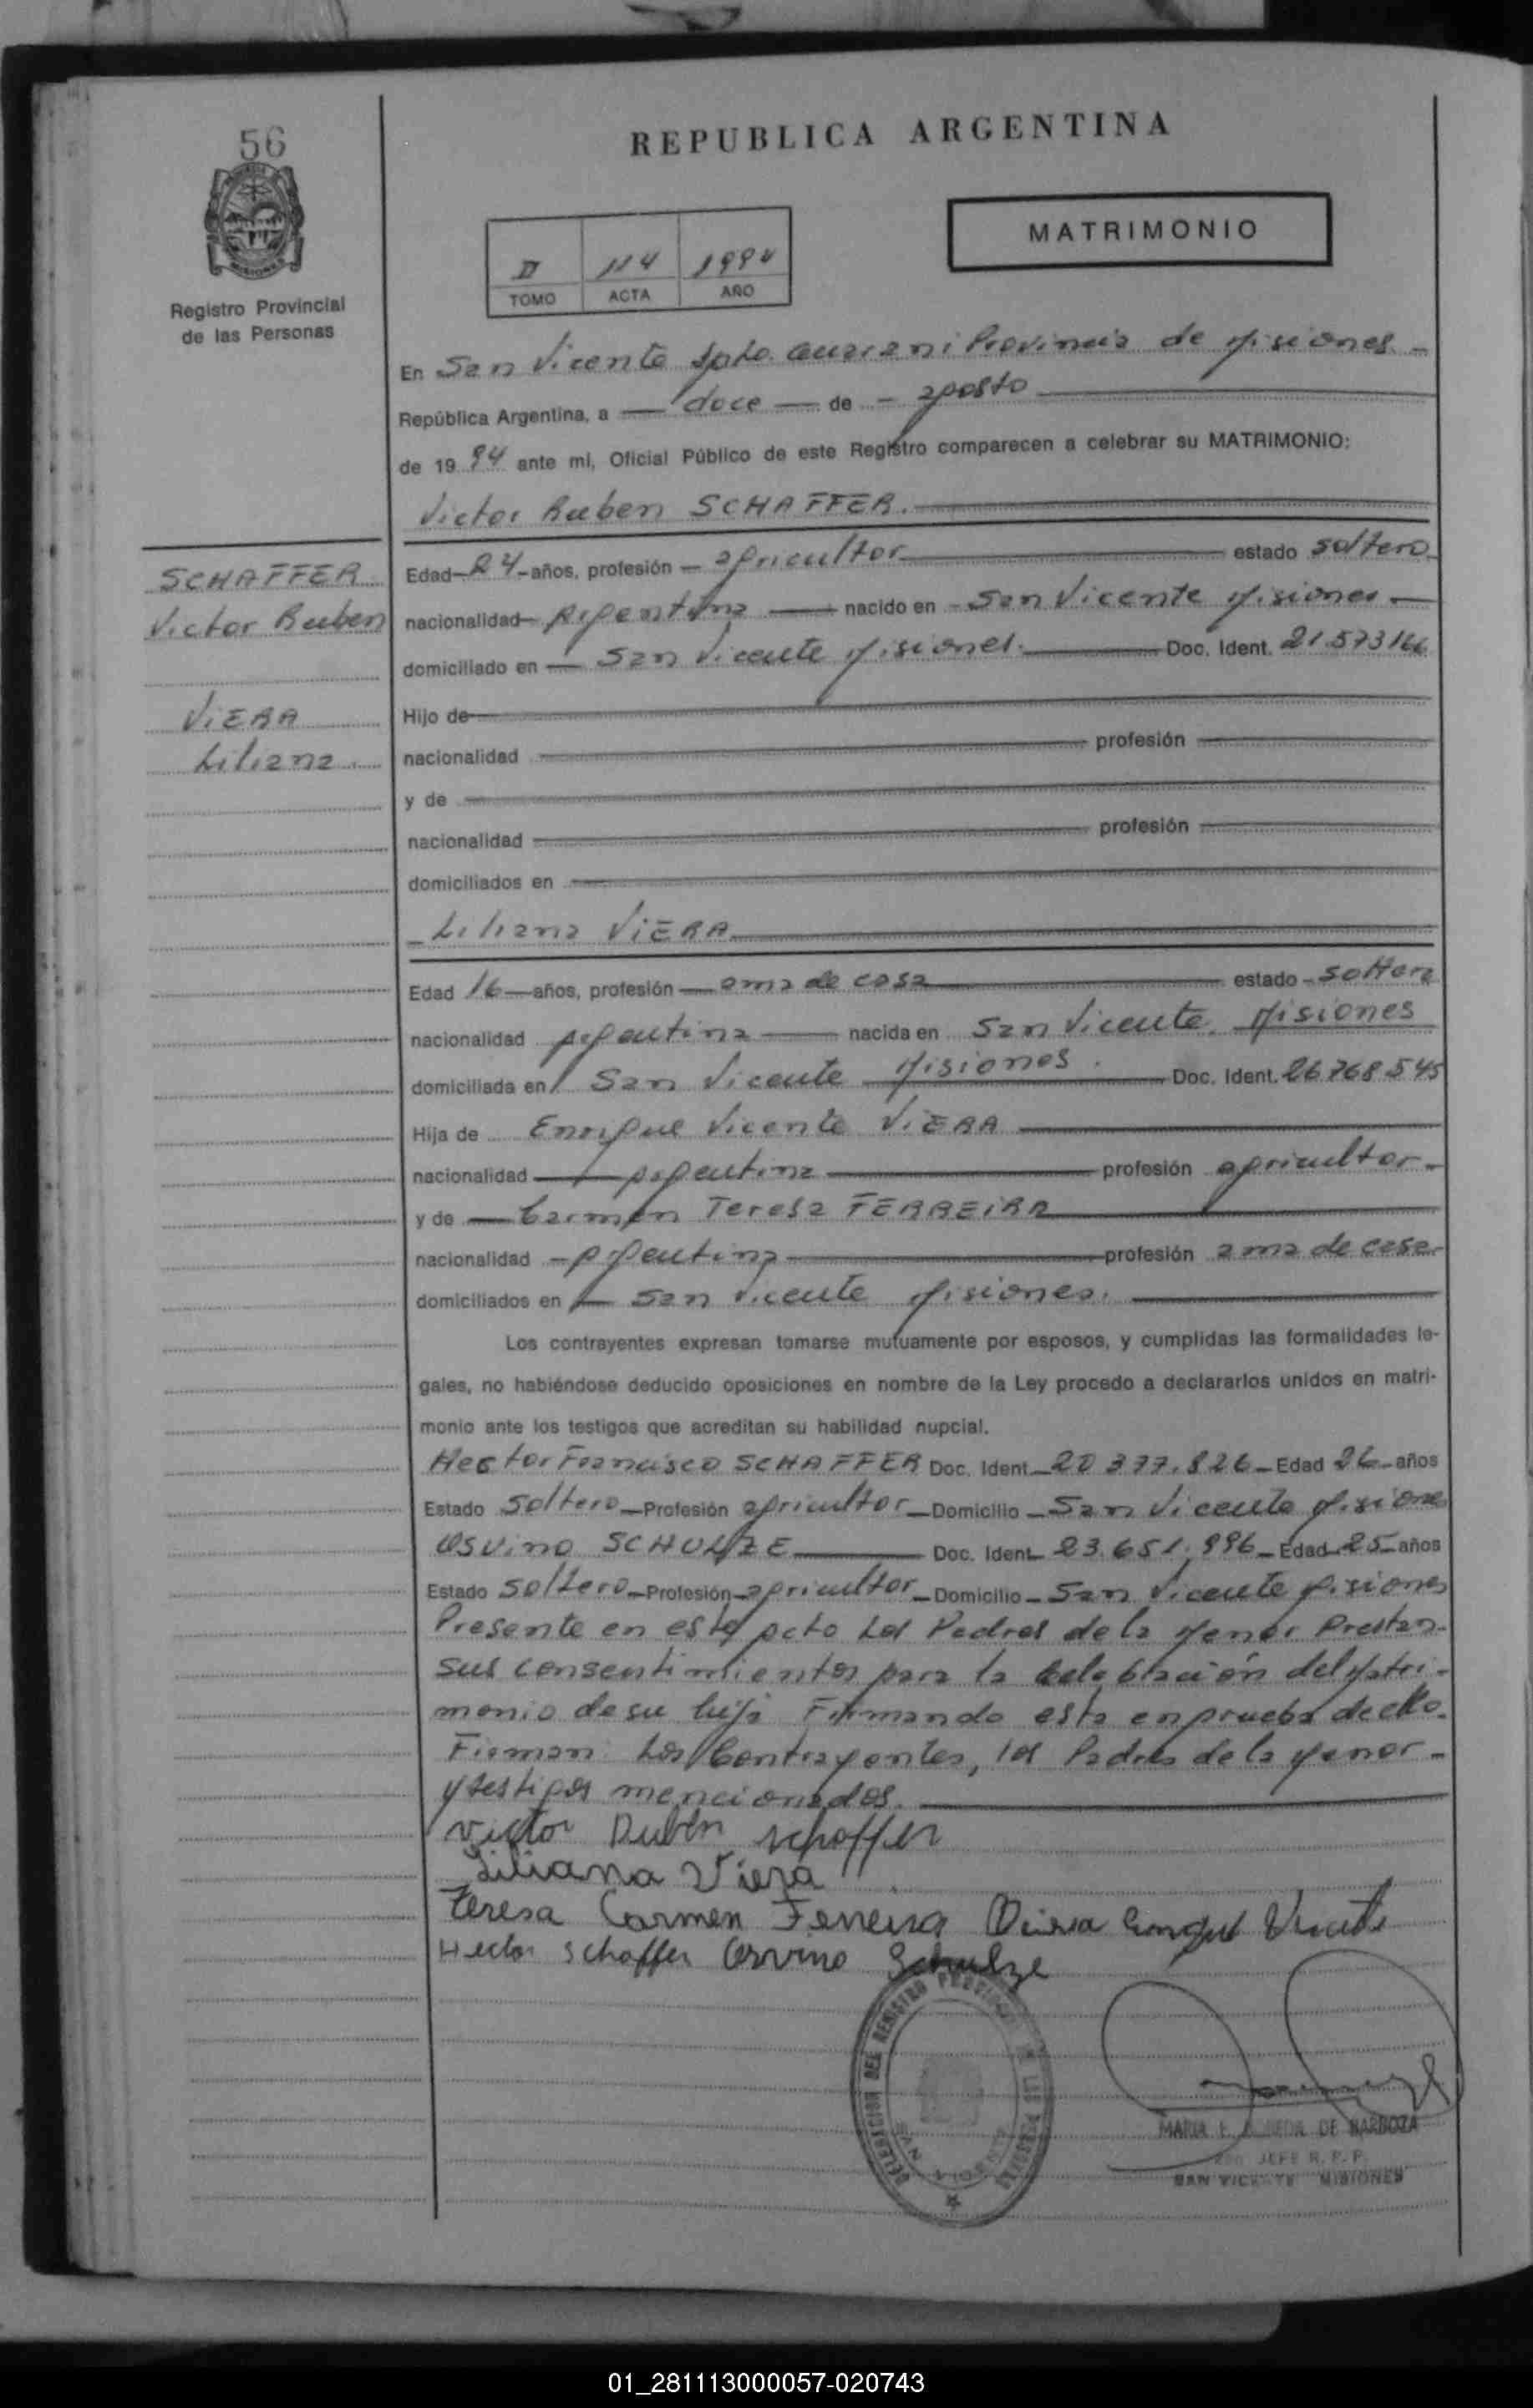 56
REPUBLICA ARGENTINA
MATRIMONIO
II 114 1994
TOMO ACTA AÑO
Registro Provincial
de las Personas
En San Vicente Dpto. Guarani Provincia de Misiones
República Argentina, a doce de agosto
de 1994 ante mi, Oficial Público de este Registro comparecen a celebrar su MATRIMONIO:
Victor Ruben SCHAFFER.
SCHAFFER
Victor Ruben
VIERA
Liliana
Edad 24 años, profesión agricultor estado soltero
nacionalidad Argentina nacido en San Vicente Misiones
domiciliado en San Vicente Misiones. Doc. Ident. 21.573166
Hijo de
nacionalidad profesión
y de
nacionalidad profesión
domiciliados en
Liliana VIERA
Edad 16 años, profesión ama de casa estado soltera
nacionalidad Argentina nacida en San Vicente Misiones
domiciliada en San Vicente Misiones. Doc. Ident. 26.768.545
Hija de Enrique Vicente VIERA
nacionalidad Argentina profesión agricultor
y de Carmen Teresa FERREIRA
nacionalidad Argentina profesión ama de casa
domiciliados en San Vicente Misiones.
Los contrayentes expresan tomarse mutuamente por esposos, y cumplidas las formalidades le-
gales, no habiéndose deducido oposiciones en nombre de la Ley procedo a declararlos unidos en matri-
monio ante los testigos que acreditan su habilidad nupcial.
Hector Francisco SCHAFFER Doc. Ident. 20.377.826 Edad 26 años
Estado Soltero Profesión agricultor Domicilio San Vicente Misiones
Osvino SCHULZE Doc. Ident. 23.651.996 Edad 25 años
Estado Soltero Profesión agricultor Domicilio San Vicente Misiones
Presente en este acto Los Padres de la Menor Prestan
sus consentimientos para la celebración del Matri-
monio de su hija Firmando esta en prueba de ello.
Firman: Los Contrayentes, los Padres de la Menor
y testigos mencionados.
Victor Rubén Schaffer
Liliana Viera
Teresa Carmen Ferreira Viera Enrique Vicente
Hector Schaffer Osvino Schulze
DELEGACION DEL REGISTRO PROVINCIAL DE LAS PERSONAS
SAN VICENTE
MARIA DE BARBOZA
JEFE R. P. P.
SAN VICENTE MISIONES
01_281113000057-020743